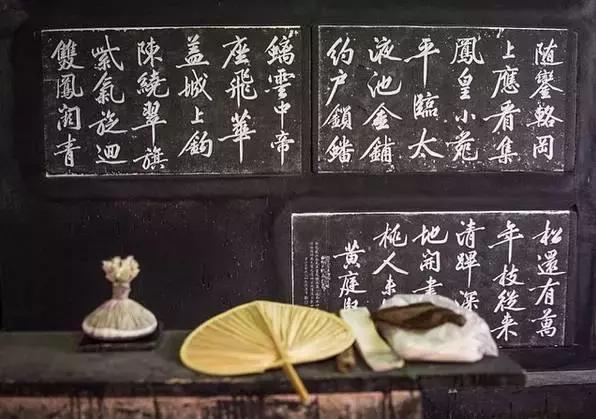 随鑾輅岡
上應看集
鳳皇小苑
平臨太
液池金鋪
約户鎖蟠
螭雲中帝
座飛華
盖城上鈎
陳繞翠旗
紫氣旋迴
雙鳳闕青
松還有萬
年枝従來
清蹕深
地開
桃人
黄庭堅